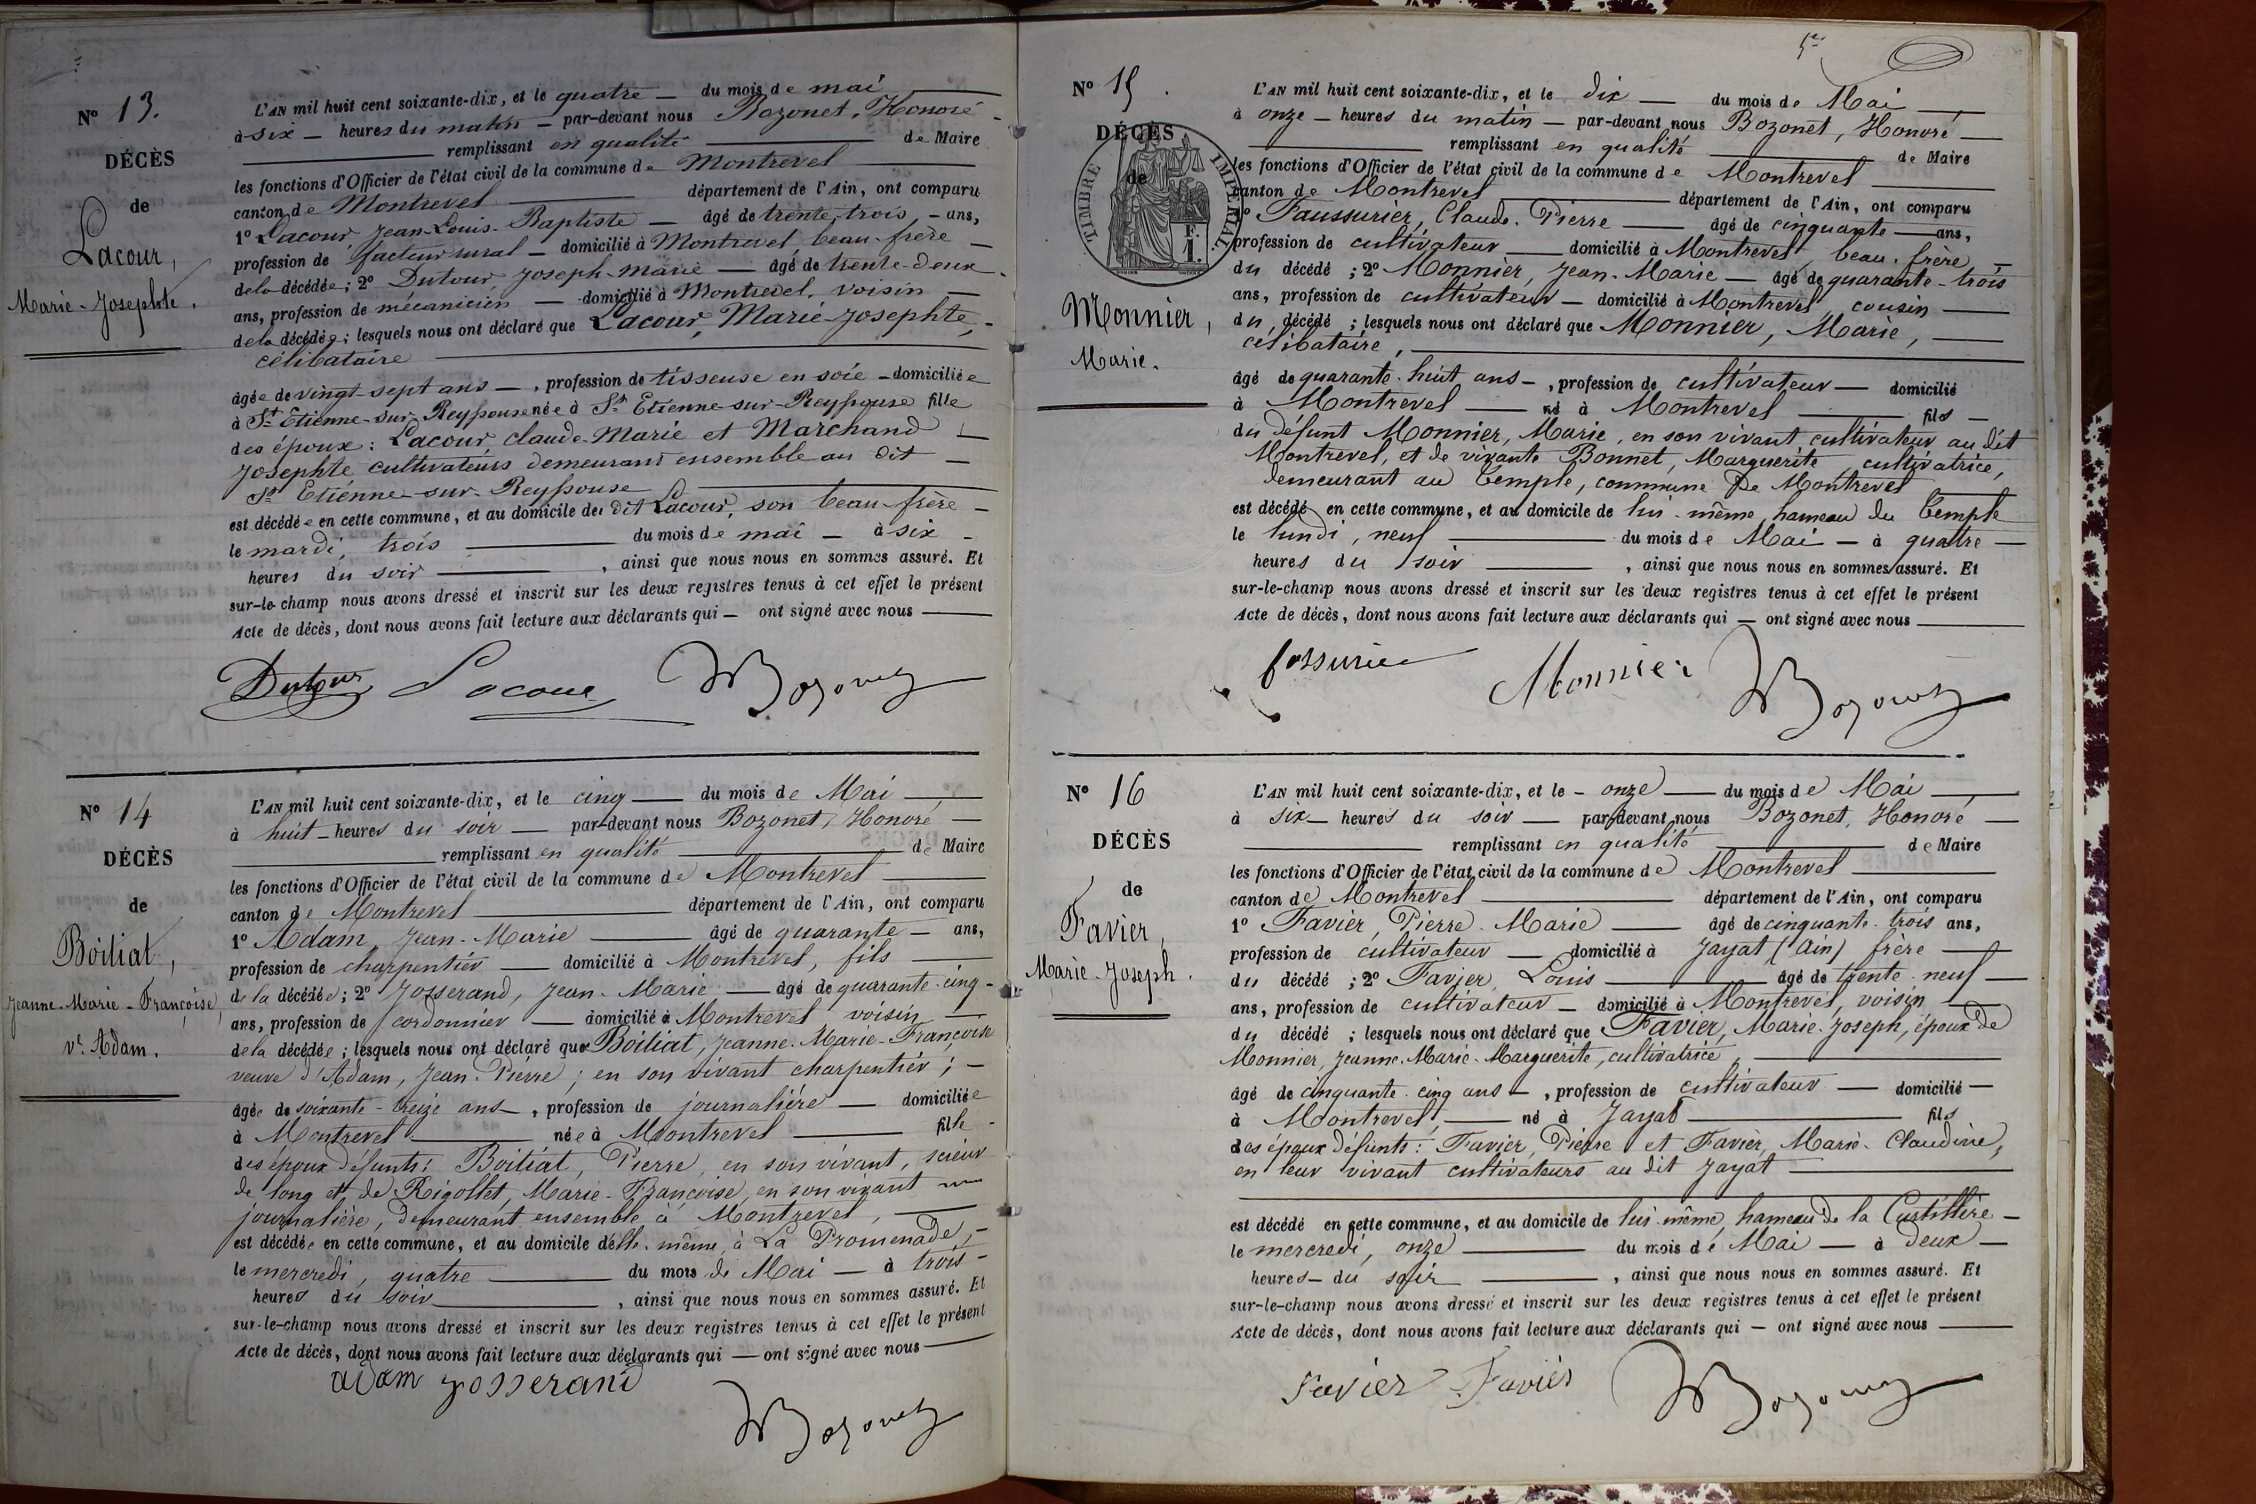 N° 13.
DÉCÈS
de
Lacour,
Marie-Josephte.
L'AN mil huit cent soixante-dix, et le quatre du mois de mai
à six heures du matin par-devant nous Bozonet, Honoré
remplissant en qualité de Maire
les fonctions d'Officier de l'état civil de la commune de Montrevel
canton de Montrevel département de l'Ain, ont comparu
1° Lacour, Jean-Louis-Baptiste âgé de trente trois ans,
profession de facteur rural domicilié à Montrevel beau-frère
de la décédée; 2° Dutour, Joseph-Marie âgé de trente-deux
ans, profession de mécanicien domicilié à Montrevel, voisin
de la décédée; lesquels nous ont déclaré que Lacour, Marie-Josephte,
célibataire
âgée de vingt-sept ans, profession de tisseuse en soie domiciliée
à St Etienne-sur-Reyssouse née à St Etienne-sur-Reyssouse fille
des époux: Lacour Claude-Marie et Marchand
Josephte cultivateurs demeurant ensemble au dit
St Etienne-sur-Reyssouse
est décédée en cette commune, et au domicile de dit Lacour, son beau-frère
le mardi, trois du mois de mai à six
heures du soir, ainsi que nous nous en sommes assuré. Et
sur-le-champ nous avons dressé et inscrit sur les deux registres tenus à cet effet le présent
Acte de décès, dont nous avons fait lecture aux déclarants qui ont signé avec nous
Dutour Lacour Bozonet
N° 14
DÉCÈS
de
Boiliat,
Jeanne-Marie-Françoise,
ve Adam.
L'AN mil huit cent soixante-dix, et le cinq du mois de Mai
à huit heures du soir par-devant nous Bozonet, Honoré
remplissant en qualité de Maire
les fonctions d'Officier de l'état civil de la commune de Montrevel
canton de Montrevel département de l'Ain, ont comparu
1° Adam, Jean-Marie âgé de quarante ans,
profession de charpentier domicilié à Montrevel, fils
de la décédée; 2° Josserand, Jean-Marie âgé de quarante-cinq
ans, profession de cordonnier domicilié à Montrevel voisin
de la décédée; lesquels nous ont déclaré que Boiliat, Jeanne-Marie-Françoise
veuve d'Adam, Jean-Pierre; en son vivant charpentier;
âgée de soixante-treize ans, profession de journalière domiciliée
à Montrevel née à Montrevel fille
des époux défunts: Boiliat, Pierre, en son vivant, scieur
de long et de Rigollet, Marie-Françoise, en son vivant
journalière, demeurant ensemble à Montrevel,
est décédée en cette commune, et au domicile d'elle-même, à La Promenade,
le mercredi, quatre du mois de Mai à trois
heures du soir, ainsi que nous nous en sommes assuré. Et
sur-le-champ nous avons dressé et inscrit sur les deux registres tenus à cet effet le présent
Acte de décès, dont nous avons fait lecture aux déclarants qui ont signé avec nous
adam josserand
Bozonet
5e
N° 15.
DÉCÈS
de
TIMBRE IMPÉRIAL
F. 1.
Monnier,
Marie.
L'AN mil huit cent soixante-dix, et le dix du mois de Mai
à onze heures du matin par-devant nous Bozonet, Honoré
remplissant en qualité de Maire
les fonctions d'Officier de l'état civil de la commune de Montrevel
canton de Montrevel département de l'Ain, ont comparu
1° Faussurier, Claude-Pierre âgé de cinquante ans,
profession de cultivateur domicilié à Montrevel, beau-frère
du décédé; 2° Monnier, Jean-Marie âgé de quarante-trois
ans, profession de cultivateur domicilié à Montrevel, cousin
du décédé; lesquels nous ont déclaré que Monnier, Marie,
célibataire,
âgé de quarante-huit ans, profession de cultivateur domicilié
à Montrevel né à Montrevel fils
du défunt Monnier, Marie, en son vivant cultivateur au dit
Montrevel, et de vivante Bonnet, Marguerite, cultivatrice,
demeurant au Temple, commune de Montrevel
est décédé en cette commune, et au domicile de lui-même, hameau du Temple
le lundi, neuf du mois de Mai à quatre
heures du soir, ainsi que nous nous en sommes assuré. Et
sur-le-champ nous avons dressé et inscrit sur les deux registres tenus à cet effet le présent
Acte de décès, dont nous avons fait lecture aux déclarants qui ont signé avec nous
fossurier Monnier Bozonet
N° 16
DÉCÈS
de
Favier,
Marie-Joseph.
L'AN mil huit cent soixante-dix, et le onze du mois de Mai
à six heures du soir par-devant nous Bozonet, Honoré
remplissant en qualité de Maire
les fonctions d'Officier de l'état civil de la commune de Montrevel
canton de Montrevel département de l'Ain, ont comparu
1° Favier, Pierre-Marie âgé de cinquante-trois ans,
profession de cultivateur domicilié à Jayat (Ain) frère
du décédé; 2° Favier, Louis âgé de trente-neuf
ans, profession de cultivateur domicilié à Montrevel, voisin
du décédé; lesquels nous ont déclaré que Favier, Marie-Joseph, époux de
Monnier, Jeanne-Marie-Marguerite, cultivatrice,
âgé de cinquante-cinq ans, profession de cultivateur domicilié
à Montrevel, né à Jayat fils
des époux défunts: Favier, Pierre et Favier, Marie-Claudine,
en leur vivant cultivateurs au dit Jayat
est décédé en cette commune, et au domicile de lui-même, hameau de la
le mercredi, onze du mois de Mai à deux
heures du soir, ainsi que nous nous en sommes assuré. Et
sur-le-champ nous avons dressé et inscrit sur les deux registres tenus à cet effet le présent
Acte de décès, dont nous avons fait lecture aux déclarants qui ont signé avec nous
Favier Favier Bozonet